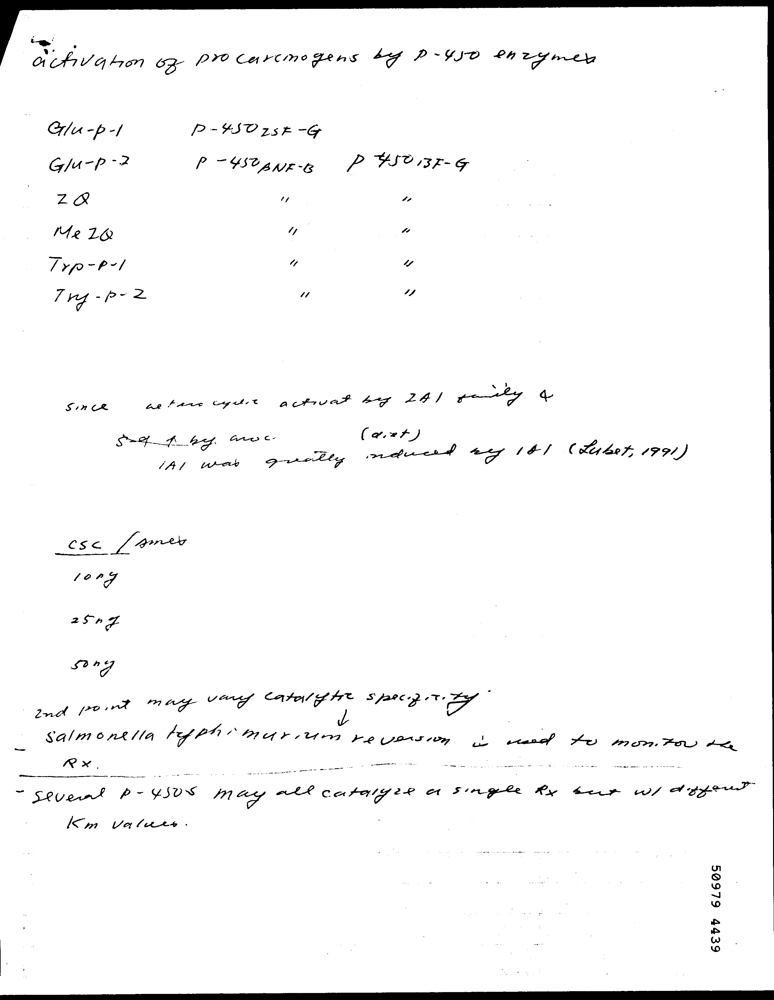 activation of procarcinogens by P-450 enzymes
Glu-p-1 P-450 ISF-G
Glu-p-2 P-450 BNF-B P 450 ISF-G
IQ " "
Me IQ " "
Trp-p-1 " "
Try-p-2 " "
since heterocyclic activat by IA1 family &
by aroc. (diet)
IA1 was greatly induced by IA1 (Lubet, 1991)
CSC / Ames
10ng
25ng
50ng
2nd point may vary catalytic specificity.
↓
- Salmonella typhimurium reversion is used to monitor the
Rx.
- Several P-450s may all catalyze a single Rx but w/ different
Km values.
50979 4439